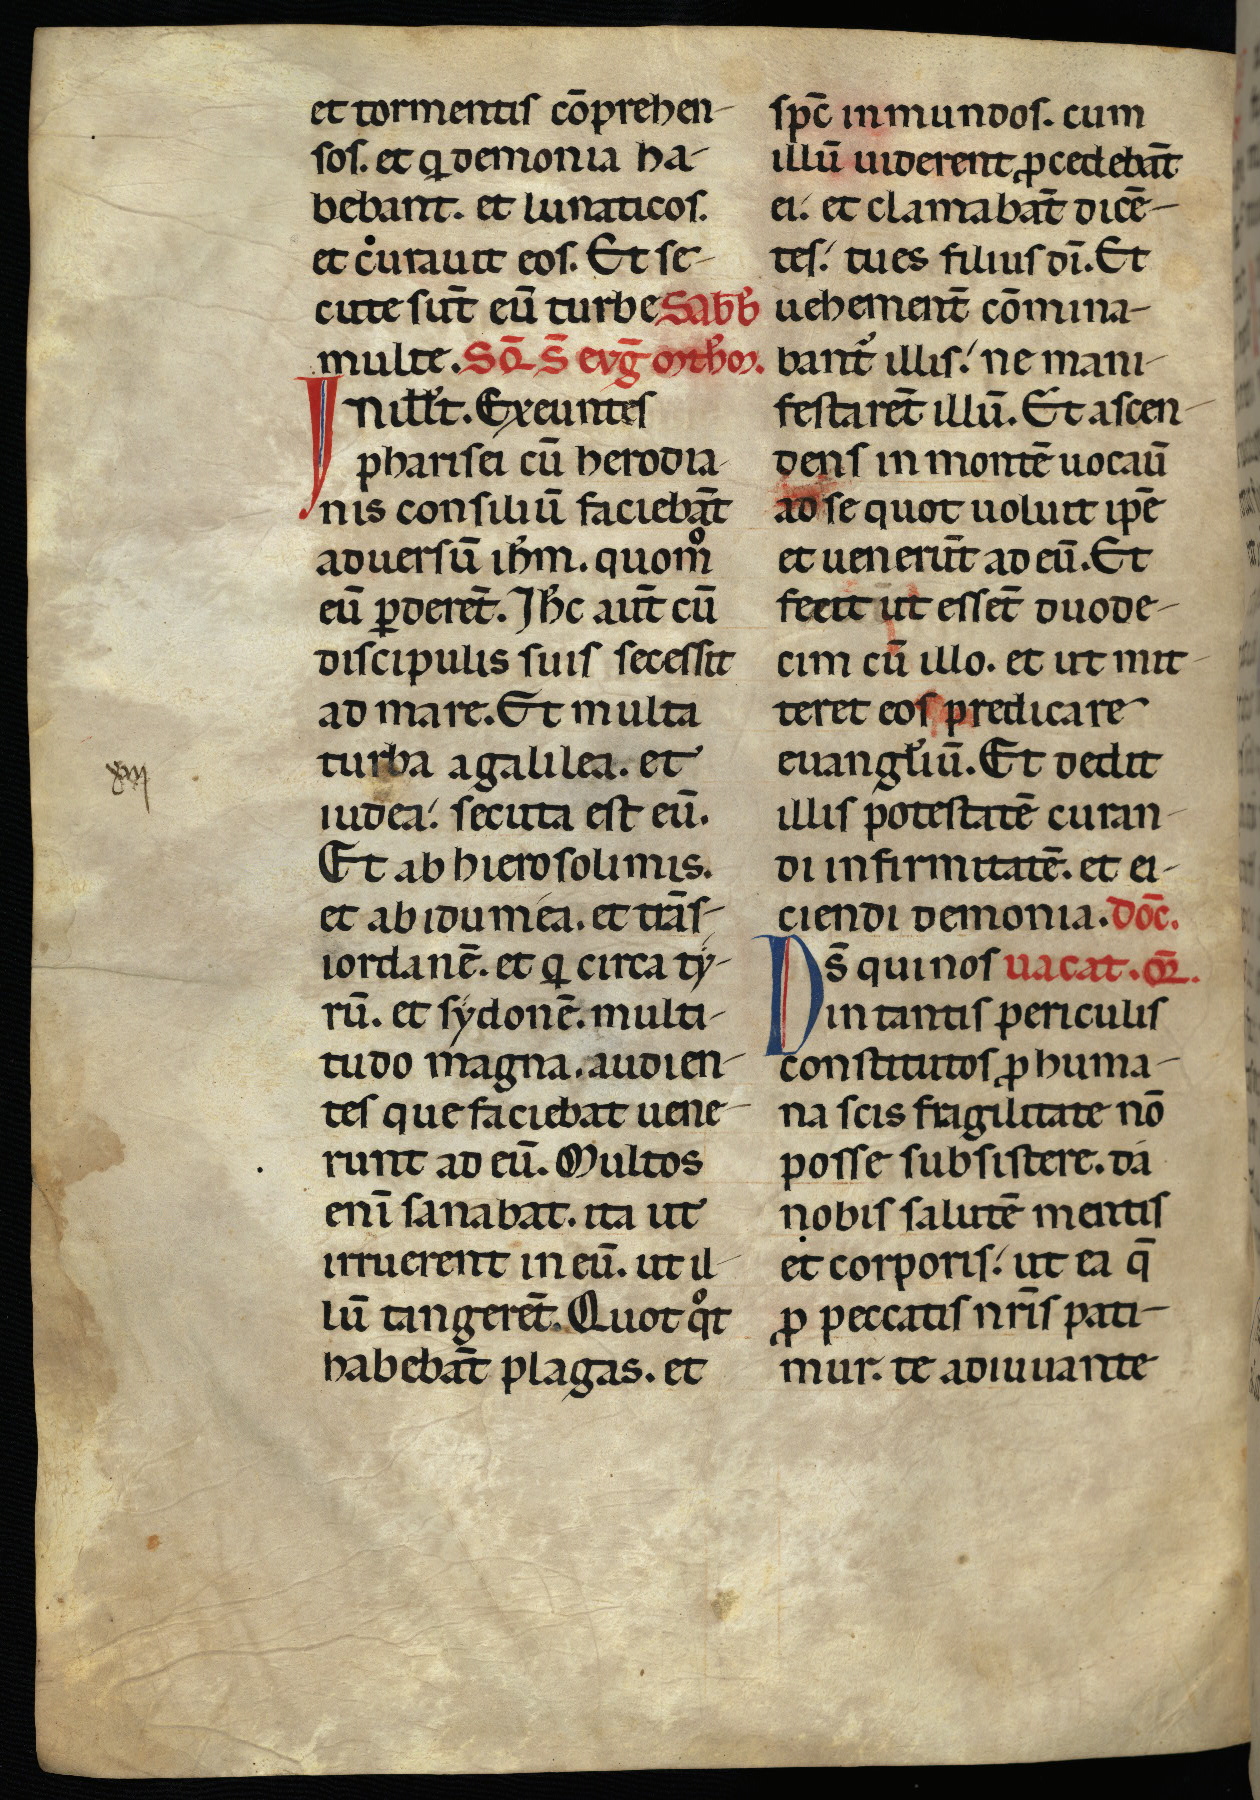 et tormentis cōprehen-
sos. et q demonia ha-
bebant. et lunaticos.
et curauit eos. Et se-
cute sūt eū turbe Sabb
multe. Sō. S̄ euḡ
In ill't. Exeuntes
pharisei cū herodia-
nis consiliū faciebāt
aduersū ihm. quomͦ
eū ꝑderēt. Ihc aūt cū
discipulis suis secessit
ad mare. Et multa
turba agalilea. et
iudea: secuta est eū.
Et ab hierosolimis.
et ab idumea. et trās-
iordanē. et q circa ty-
rū. et sydonē. multi-
tudo magna. audien-
tes que faciebat uene-
runt ad eū. Multos
enī sanabat. ita ut
irruerent in eū. ut il-
lū tangerēt. Quotqͦt
habebāt plagas. et
sp̄c inmundos. cum
illū uiderent ꝓcedebāt
ei: et clamabāt dicē-
tes: tu es filius dī. Et
uehement̄ cōmina-
bantᷣ illis: ne mani-
festarēt illū. Et ascen-
dens in montē uocaū
ad se quot uoluit ipē
et uenerūt ad eū. Et
fecit ut essēt duode-
cim cū illo. et ut mit-
teret eos predicare
euangl'iū. Et dedit
illis potestatē curan-
di infirmitatē. et ei-
ciendi demonia. dōc.
Ds̄ qui nos uacat. or̄.
in tantis periculis
constitutos ꝓ huma-
na scis fragilitate nō
posse subsistere. da
nobis salutē mentis
et corporis: ut ea q̄
ꝓ peccatis nr̄is pati-
mur. te adiuuante